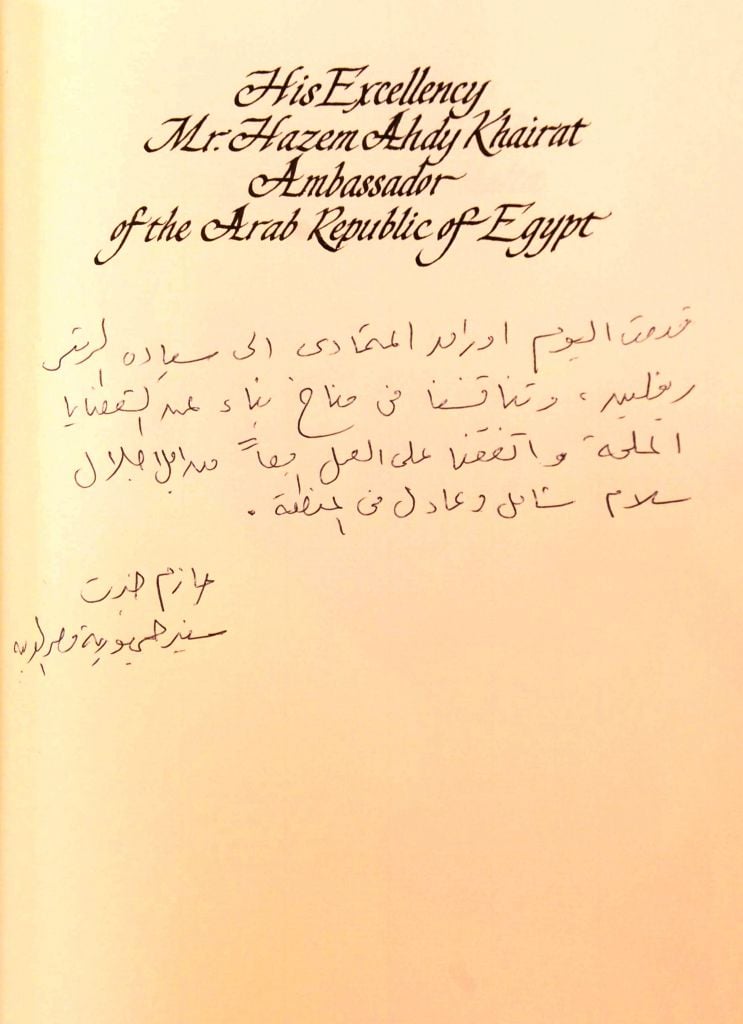 His Excellency
Mr. Hazem Ahdy Khairat
Ambassador
of the Arab Republic of Egypt
قدمت اليوم اوراق اعتمادى الى سيادة الرئيس
ريفلين، وتناقشنا فى مناخ بناء عن القضايا
الملحة واتفقنا على العمل معاً من اجل احلال
سلام شامل وعادل فى المنطقة.
حازم خيرت
سفير جمهورية مصر العربية